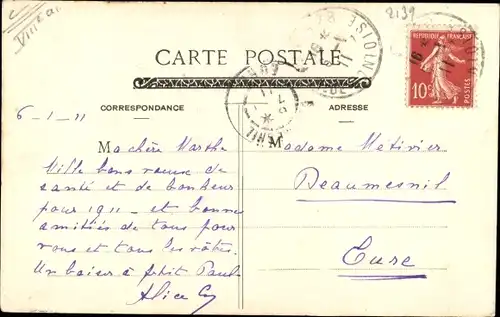 2139
CARTE POSTALE
REPUBLIQUE FRANÇAISE
10c
POSTES
CORRESPONDANCE
ADRESSE
6-1-11
Ma chère Marthe
Mille bons vœux de
santé et de bonheur
pour 1911 - et bonnes
amitiés de tous pour
vous et tous les vôtres.
Un baiser à petit Paul
Alice
Madame Métivier
Beaumesnil
Eure